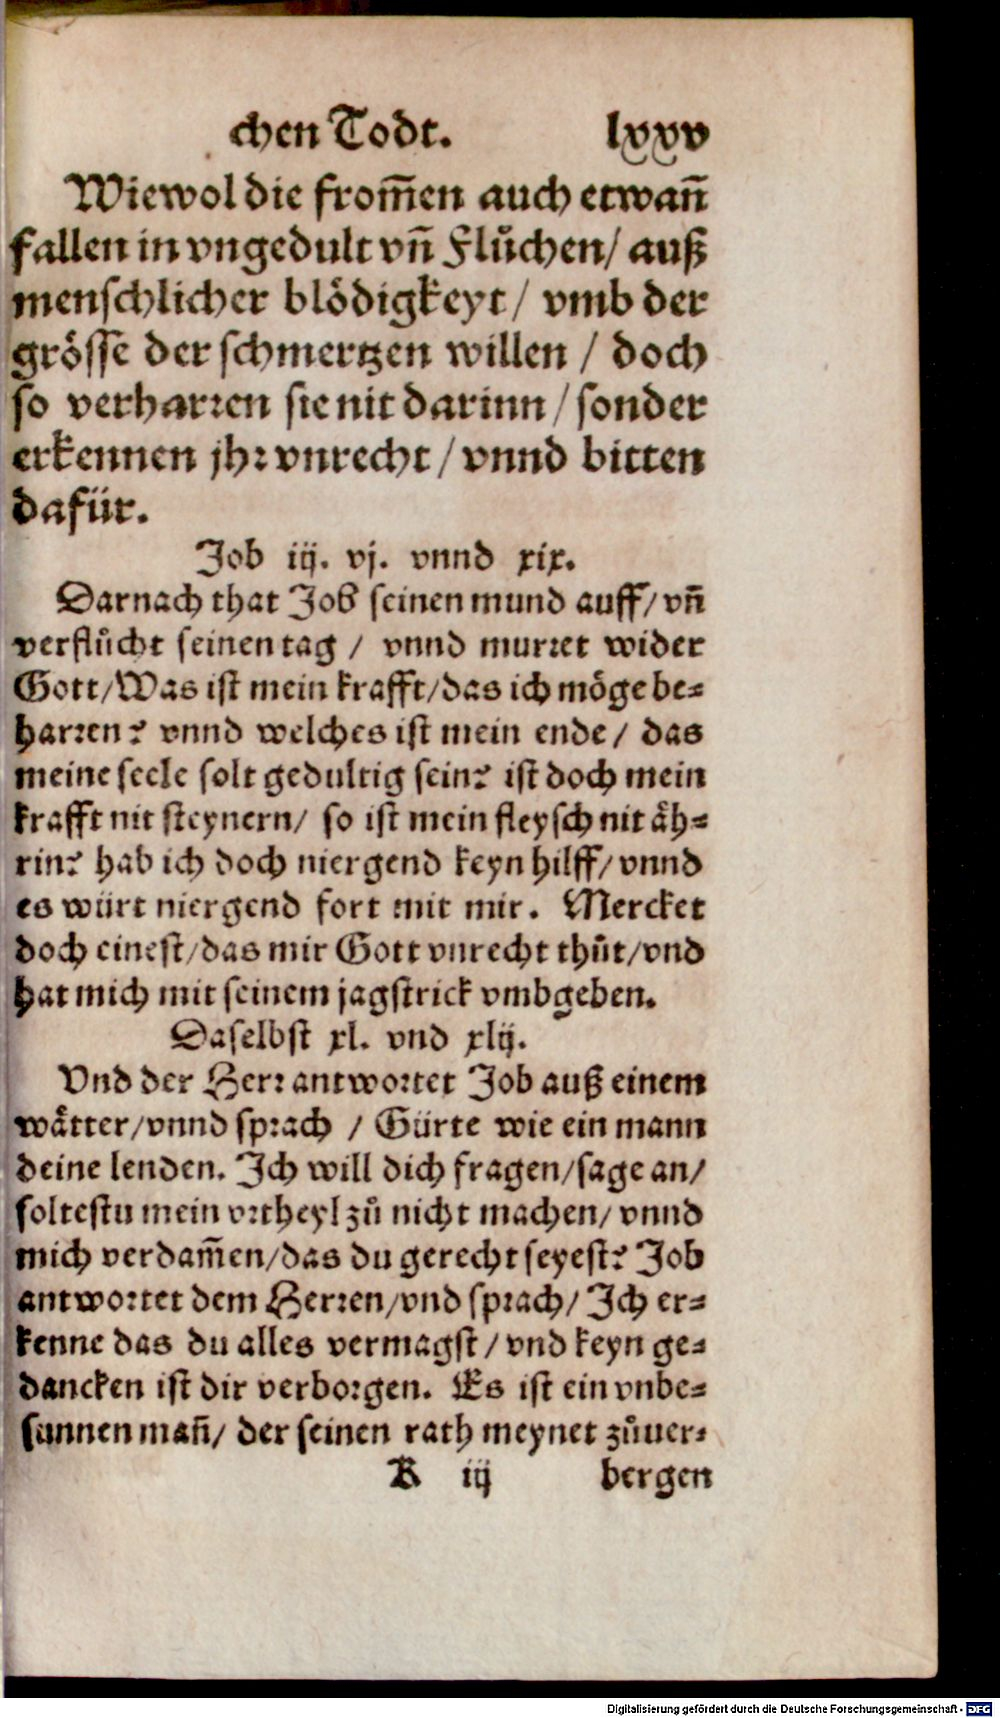 chen Todt. lxxv
Wiewol die from̄en auch etwan̄
fallen in vngedult vn̄ Flůchen/ auß
menschlicher blödigkeyt/ vmb der
grösse der schmertzen willen / doch
so verharren sie nit darinn / sonder
erkennen jhr vnrecht / vnnd bitten
dafür.
Job iij. vj. vnnd xix.
Darnach that Job seinen mund auff/ vn̄
verflůcht seinen tag / vnnd murret wider
Gott/Was ist mein krafft/das ich möge be-
harren? vnnd welches ist mein ende/ das
meine seele solt gedultig sein? ist doch mein
krafft nit steynern/ so ist mein fleysch nit äh-
rin? hab ich doch niergend keyn hilff/ vnnd
es würt niergend fort mit mir. Mercket
doch einest/das mir Gott vnrecht thůt/vnd
hat mich mit seinem jagstrick vmbgeben.
Daselbst xl. vnd xlij.
Vnd der Herr antwortet Job auß einem
wätter/vnnd sprach / Gürte wie ein mann
deine lenden. Ich will dich fragen/sage an/
soltestu mein vrtheyl zů nicht machen/ vnnd
mich verdam̄en/das du gerecht seyest? Job
antwortet dem Herren/vnd sprach/ Ich er-
kenne das du alles vermagst / vnd keyn ge-
dancken ist dir verborgen. Es ist ein vnbe-
sunnen man̄/ der seinen rath meynet zůuer-
K iij bergen
Digitalisierung gefördert durch die Deutsche Forschungsgemeinschaft - DFG